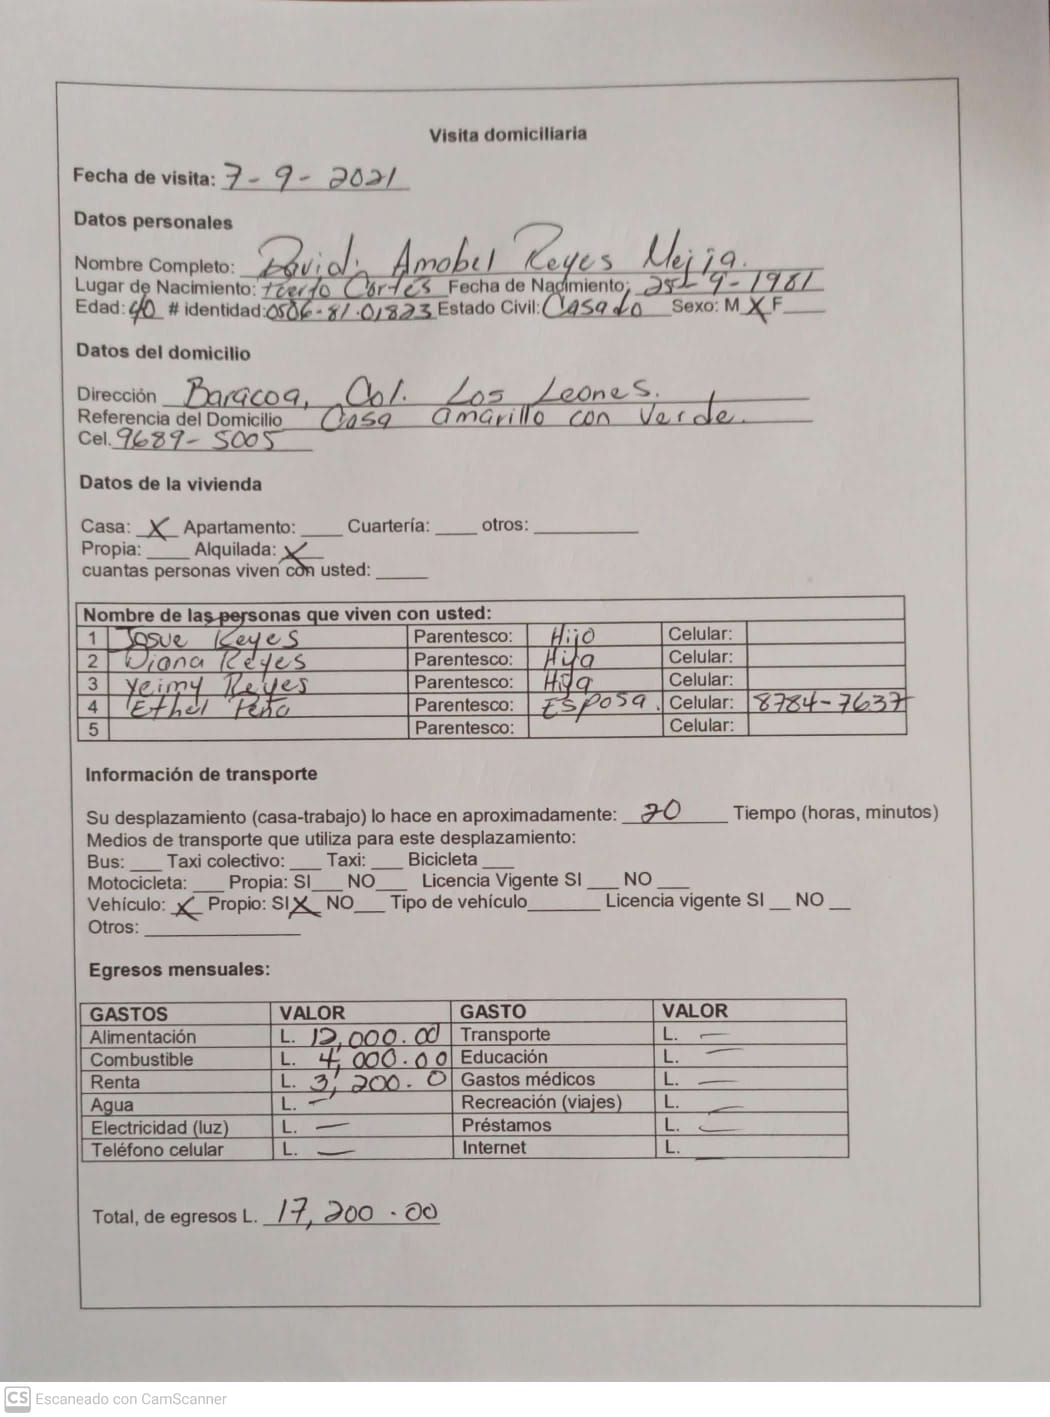 Visita domiciliaria
Fecha de visita: 7-9-2021
Datos personales
Nombre Completo: David Amobel Reyes Mejia.
Lugar de Nacimiento: Puerto Cortés Fecha de Nacimiento: 25-9-1981
Edad: 40 # identidad: 0506-81-01823 Estado Civil: Casado Sexo: M X F____
Datos del domicilio
Dirección Baracoa, Col. Los Leones.
Referencia del Domicilio Casa amarillo con Verde.
Cel. 9689-5005
Datos de la vivienda
Casa: X Apartamento: ____ Cuartería: ____ otros: ____
Propia: ____ Alquilada: X
cuantas personas viven con usted: ____
Nombre de las personas que viven con usted:
1 Josue Reyes Parentesco: Hijo Celular:
2 Diana Reyes Parentesco: Hija Celular:
3 Yeimy Reyes Parentesco: Hija Celular:
4 Ethel Peña Parentesco: Esposa. Celular: 8784-7637
5 Parentesco: Celular:
Información de transporte
Su desplazamiento (casa-trabajo) lo hace en aproximadamente: 20 Tiempo (horas, minutos)
Medios de transporte que utiliza para este desplazamiento:
Bus: ____ Taxi colectivo: ____ Taxi: ____ Bicicleta ____
Motocicleta: ____ Propia: SI____ NO____ Licencia Vigente SI ____ NO ____
Vehículo: X Propio: SI X NO____ Tipo de vehículo____ Licencia vigente SI ____ NO ____
Otros: ____
Egresos mensuales:
GASTOS VALOR GASTO VALOR
Alimentación L. 12,000.00 Transporte L. —
Combustible L. 4,000.00 Educación L. —
Renta L. 3,200.0 Gastos médicos L. —
Agua L. — Recreación (viajes) L. —
Electricidad (luz) L. — Préstamos L. —
Teléfono celular L. — Internet L. —
Total, de egresos L. 17,200.00
CS Escaneado con CamScanner